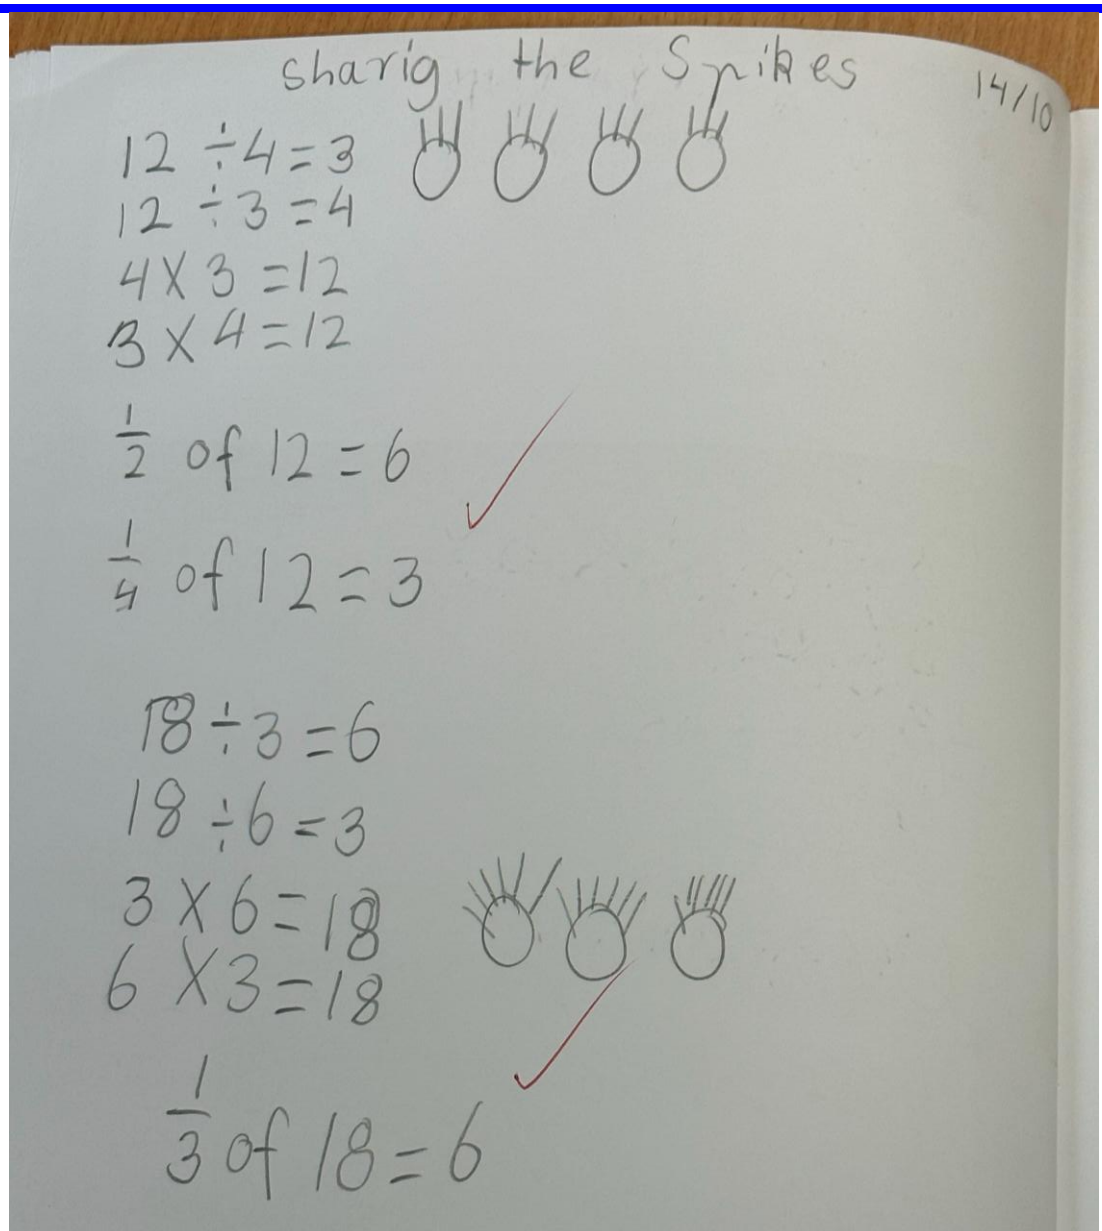 sharig the Spikes
14/10
12 ÷ 4 = 3
12 ÷ 3 = 4
4 X 3 = 12
3 X 4 = 12
1/2 of 12 = 6
1/4 of 12 = 3
18 ÷ 3 = 6
18 ÷ 6 = 3
3 X 6 = 18
6 X 3 = 18
1/3 of 18 = 6